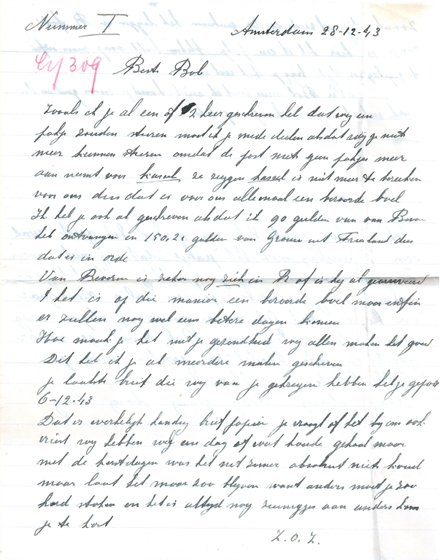 Nummer I Amsterdam 28-12-43
Cy 309 Beste Bob
Zooals ik je al een of 2 keer geschreven heb dat wij een
pakje zouden sturen moet ik je mede deelen absdat wij je niet
meer kunnen sturen omdat de post nich geen pakjes meer
aan neemt voor Kassel, ze zeggen Kassel is niet meer te bereiken
voor ons dus dat is voor ons allemaal een beroerde boel
Ik heb je ook al geschreven absdat ik 90 gulden van van
heb ontvangen en 150,21 gulden van uit Friesland dus
dat is in orde
Van is zeker nog ziek in of is hij al
't het is op die manier een beroerde boel maar enfin
er zullen nog wel een betere dagen komen
Hoe maak je het met je gezondheid wij allen maken het goed
Dit heb ik je al meerdere malen geschreven
je laatste brief die wij van je gekregen hebben
6-12-43
Dat is handig brief papier je vraagt of het bij ons ook
vriest wij hebben een dag of wat koude gehad maar
met de kerstdagen was het net zomer absoluut nich koud
maar laat het maar zoo blijven want anders moet je zoo
hard stoken en het is altijd nog zuinigjes aan anders kom
je te kort
Z.O.Z.